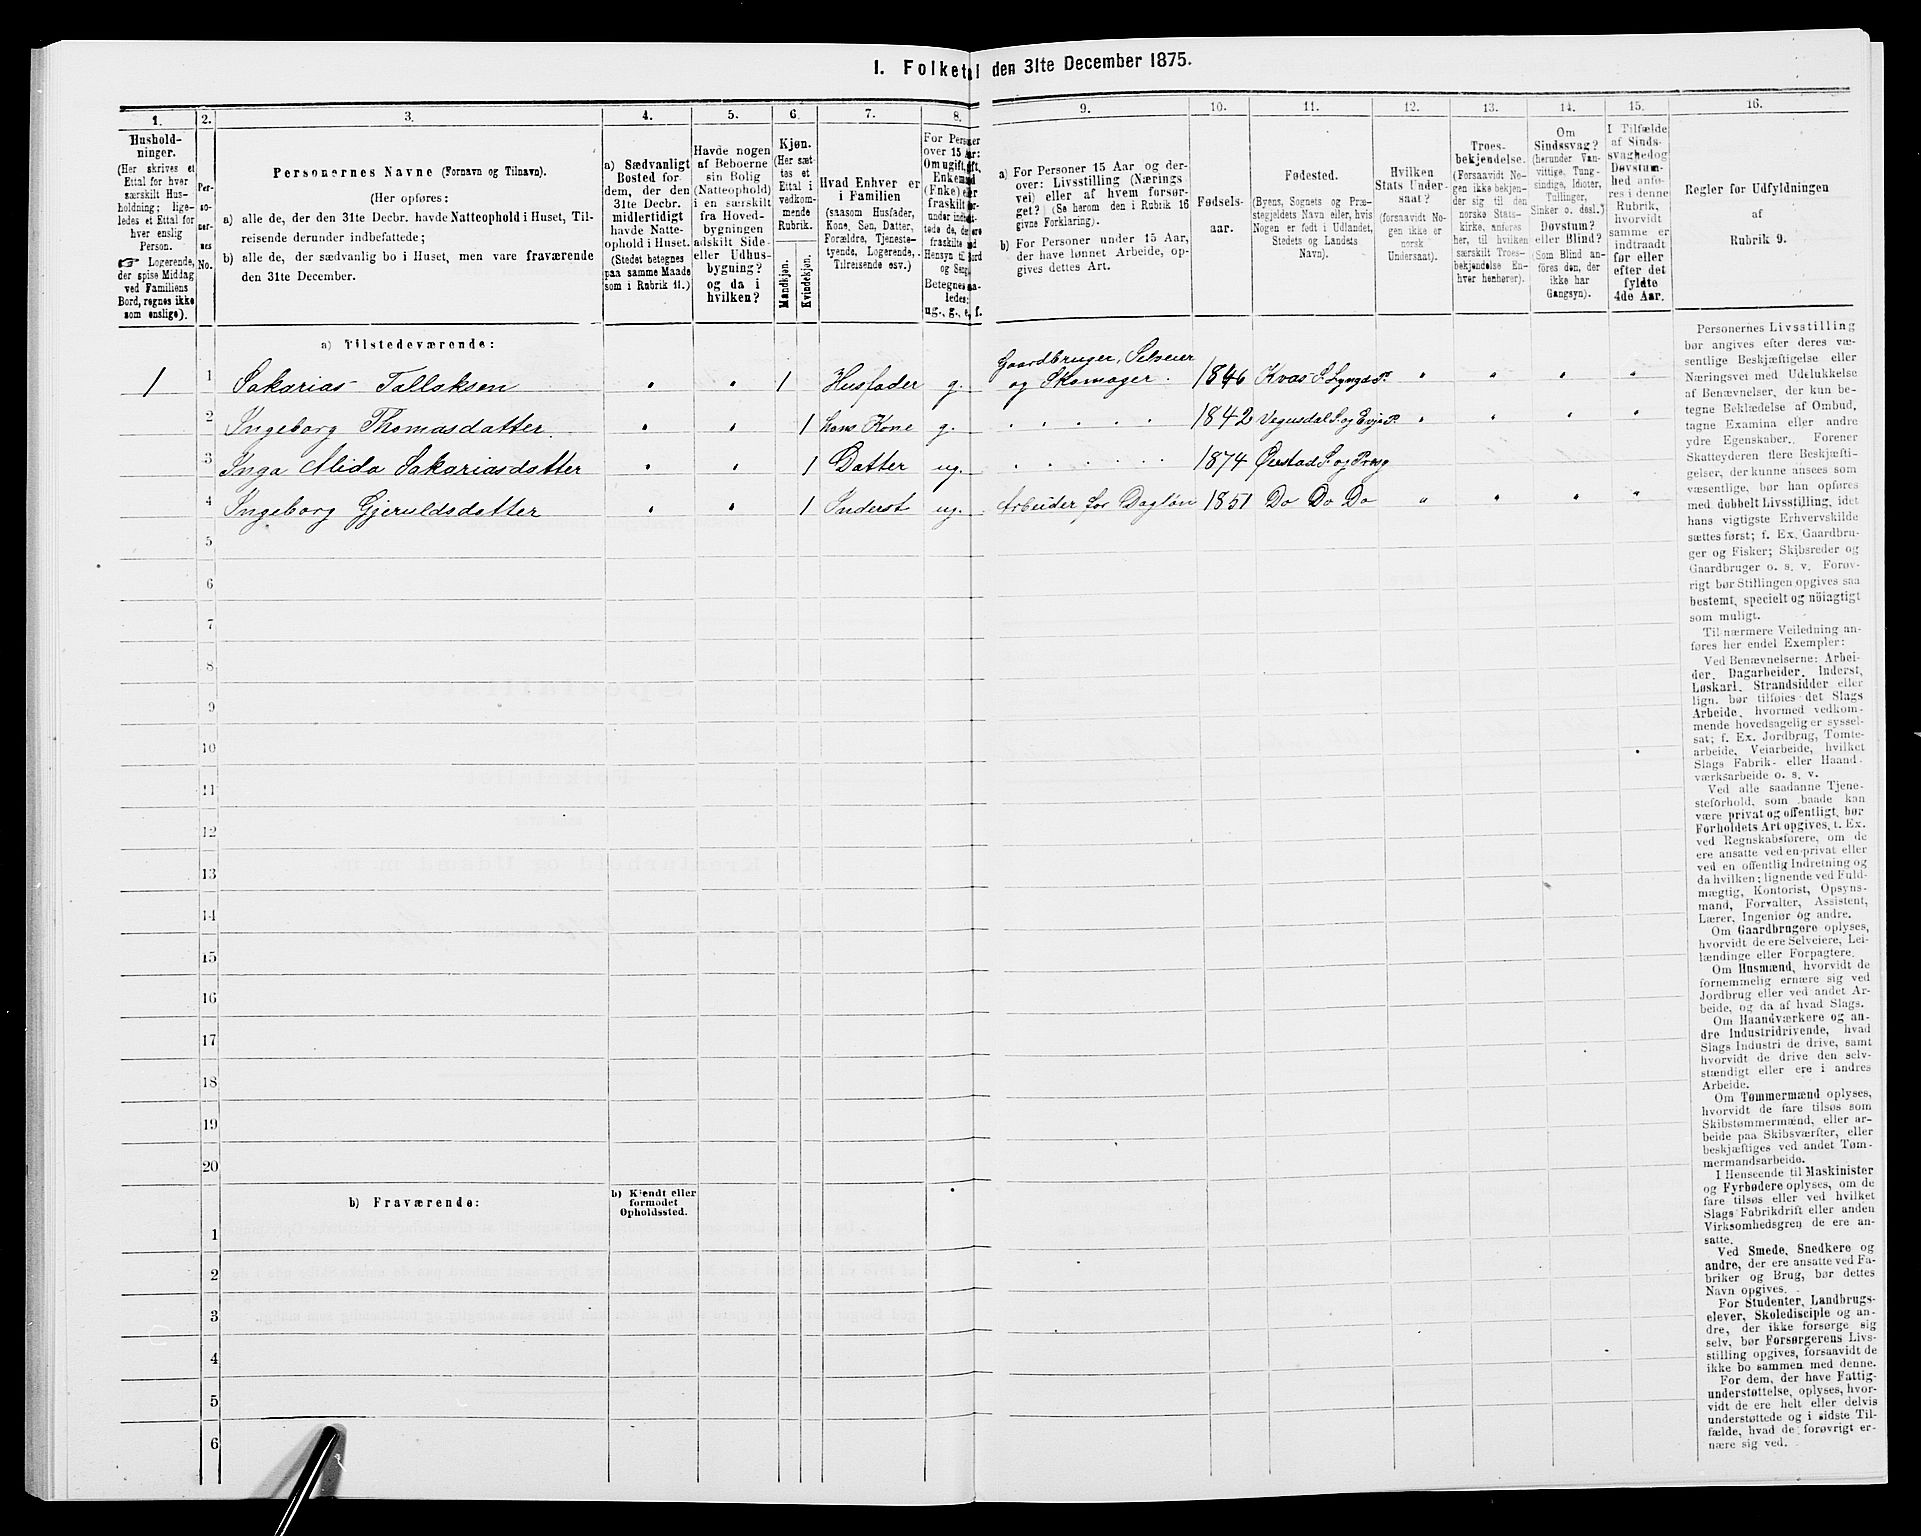 I. Folketal den 31te December 1875.
1.
Hushold-
ninger.
(Her skrives et
Ettal for hver
særskilt Hus-
holdning; lige-
ledes et Ettal for
hver enslig
Person.
☞ Logerende,
der spise Middag
ved Familiens
Bord, regnes ikke
som enslige).
2.
Per-
so-
ner-
nes
No.
3.
Personernes Navne (Fornavn og Tilnavn).
(Her opføres:
a) alle de, der den 31te Decbr. havde Natteophold i Huset, Til-
reisende derunder indbefattede;
b) alle de, der sædvanlig bo i Huset, men vare fraværende
den 31te December.
4.
a) Sædvanligt
Bosted for
dem, der den
31te Decbr.
midlertidigt
havde Natte-
ophold i Huset.
(Stedet betegnes
paa samme Maade
som i Rubrik 11.)
5.
Havde nogen
af Beboerne
sin Bolig
(Natteophold)
i en særskilt
fra Hoved-
bygningen
adskilt Side-
eller Udhus-
bygning?
og da i
hvilken?
6.
Kjøn.
(Her sæt-
tes et
Ettal i
vedkom-
mende
Rubrik.
Mandkjøn.
Kvindekjøn.
7.
Hvad Enhver er
i Familien
(saasom Husfader,
Kone, Søn, Datter,
Forældre, Tjeneste-
tyende, Logerende,
Tilreisende osv.)
8.
For Personer
over 15 Aar:
Om ugift, gift,
Enkemand
(Enke) eller
fraskilt
ug., g., e, f.
9.
a) For Personer 15 Aar og der-
over: Livsstilling (Nærings-
vei) eller af hvem forsør-
get? (Se herom den i Rubrik 16
givne Forklaring).
b) For Personer under 15 Aar,
der have lønnet Arbeide, op-
gives dettes Art.
10.
Fødsels-
aar.
11.
Fødested.
(Byens, Sognets og Præ-
stegjeldets Navn eller, hvis
Nogen er født i Udlandet,
Stedets og Landets
Navn).
12.
Hvilken
Stats Under-
saat?
(forsaavidt No-
gen ikke er
norsk
Undersaat).
13.
Troes-
bekjendelse.
(Forsaavidt No-
gen ikke bekjen-
der sig til den
norske Stats-
kirke, anføres
her, til hvilken
særskilt Troes-
bekjendelse En-
hver henhører).
14.
Om
Sindssvag?
(herunder Van-
vittige, Tung-
sindige, Idioter,
Tullinger,
Sinker o. desl.)
Døvstum?
eller Blind?
(Som Blind an-
føres den, der
ikke har
Gangsyn).
15.
I Tilfælde
af Sinds-
svaghed og
Døvstum-
hed anfø-
res i denne
Rubrik,
hvorvidt
samme er
indtraadt
før eller
efter det
fyldte
4de Aar.
16.
Regler for Udfyldningen
af
Rubrik 9.
a) Tilstedeværende:
1 1 Sakarias Tallaksen " " 1 Husfader g. Gaardbruger, Selveier
og Skomager. 1846 Kvas S. Lyngd. P. " " " "
2 Ingeborg Thomasdatter. " " 1 hans Kone g. 1842 Vegusdal S. og Evje P. " " " "
3 Inga Alida Sakariasdatter " " 1 Datter ug. 1874 Øiestad S. og Præg
4 Ingeborg Gjeruldsdatter " " 1 Inderst ug. Arbeider for Dagløn 1851 Do Do Do " " " "
5
6
7
8
9
10
11
12
13
14
15
16
17
18
19
20
b) Fraværende:
b) Kjendt eller
formodet
Opholdssted.
1
2
3
4
5
6
Personernes Livsstilling
bør angives efter deres væ-
sentlige Beskjæftigelse eller
Næringsvei med Udelukkelse
af Benævnelser, der kun be-
tegne Beklædelse af Ombud,
tagne Examina eller andre
ydre Egenskaber. Forener
Skatteyderen flere Beskjæfti-
gelser, der kunne ansees som
væsentlige, bør han opføres
med dobbelt Livsstilling, idet
hans vigtigste Erhvervskilde
sættes først; f. Ex. Gaardbru-
ger og Fisker; Skibsreder og
Gaardbruger o. s. v. Forøv-
rigt bør Stillingen opgives saa
bestemt, specielt og nöiagtigt
som muligt.
Til nærmere Veiledning an-
føres her endel Exempler:
Ved Benævnelserne: Arbei-
der, Dagarbeider, Inderst,
Løskarl, Strandsidder eller
lign. bør tilføies det Slags
Arbeide, hvormed vedkom-
mende hovedsagelig er syssel-
sat; f. Ex. Jordbrug, Tomte-
arbeide, Veiarbeide, hvilket
Slags Fabrik- eller Haand-
værksarbeide o. s. v.
Ved alle saadanne Tjene-
steforhold, som baade kan
være privat og offentligt, bør
Forholdets Art opgives, t. Ex.
ved Regnskabsførere, om de
ere ansatte ved en privat eller
ved en offentlig Indretning og
da hvilken; lignende ved Fuld-
mægtig, Kontorist, Opsyns-
mand, Forvalter, Assistent,
Lærer, Ingeniør og andre.
Om Gaardbrugere oplyses,
hvorvidt de ere Selveiere, Lei-
lændinge eller Forpagtere.
Om Husmænd, hvorvidt de
fornemmelig ernære sig ved
Jordbrug eller ved andet Ar-
beide, og da af hvad Slags.
Om Haandværkere og an-
dre Industridrivende, hvad
Slags Industri de drive, samt
hvorvidt de drive den selv-
stændigt eller ere i andres
Arbeide.
Om Tømmermænd oplyses,
hvorvidt de fare tilsøs som
Skibstømmermænd, eller ar-
beide paa Skibsværfter, eller
beskjæftiges ved andet Tøm-
mermandsarbeide.
I Henseende til Maskinister
og Fyrbødere oplyses, om de
fare tilsøs eller ved hvilket
Slags Fabrikdrift eller anden
Virksomhedsgren de ere an-
satte.
Ved Smede, Snedkere og
andre, der ere ansatte ved Fa-
briker og Brug, bør dettes
Navn opgives.
For Studenter, Landbrugs-
elever, Skoledisciple og an-
dre, der ikke forsørge sig
selv, bør Forsørgerens Livs-
stilling opgives, forsaavidt de
ikke bo sammen med denne.
For dem, der have Fattig-
understøttelse, oplyses, hvor-
vidt de ere helt eller delvis
understøttede og i sidste Til-
fælde, hvad de forøvrigt er-
nære sig ved.